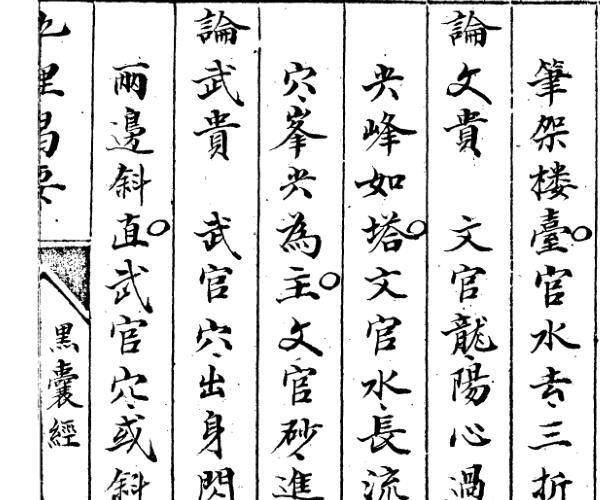 筆架楼臺○官水去、三折
論文貴　文官龍、陽心過
尖峰如塔○文官水、長流
穴、峯尖為主○文官砂、進
論武貴　武官穴、出身閃
兩邊斜直○武官穴、或斜
黒囊經